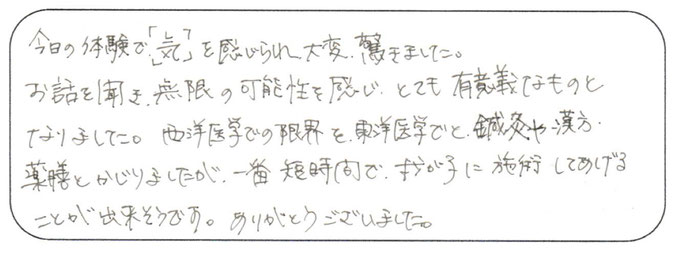 今日の体験で「気」を感じられ大変、驚きました。
お話を聞き、無限の可能性を感じ、とても有意義なものと
なりました。西洋医学での限界を、東洋医学でと、鍼灸や漢方、
薬膳とかじりましたが、一番短時間で、わが子に施術してあげる
ことが出来そうです。ありがとうございました。